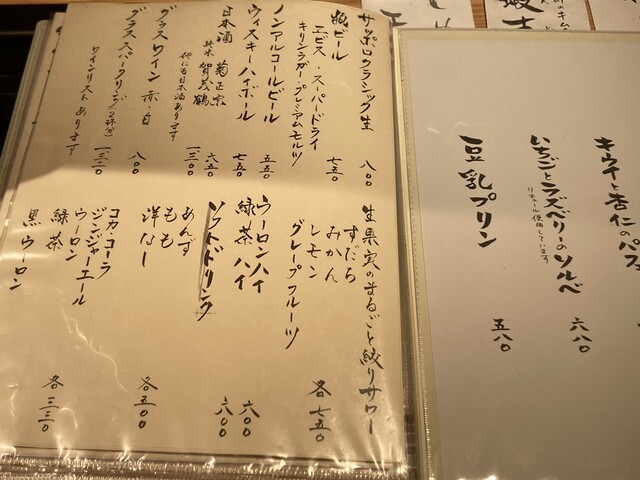 サッポロクラシック生 八〇〇
瓶ビール 七五〇
エビス・スーパードライ
キリンラガー・プレミアムモルツ
ノンアルコールビール 五五〇
ウィスキーハイボール 七五〇
日本酒 菊正宗 六五〇
純米 賀茂鶴 一三〇〇
他にも日本酒あります
グラスワイン 赤・白 八〇〇
グラススパークリング
ワインリストあります
生果実のまるごと絞りサワー
すだち
みかん
レモン
グレープフルーツ 各七五〇
ウーロンハイ 六〇〇
緑茶ハイ 六〇〇
ソフトドリンク
あんず
もも
洋なし 各五〇〇
コカ・コーラ
ジンジャーエール
ウーロン
緑茶
黒ウーロン 各三三〇
キウイと杏仁のパフ
いちごとラズベリーのソルベ 六八〇
リキュール使用しています
豆乳プリン 五八〇